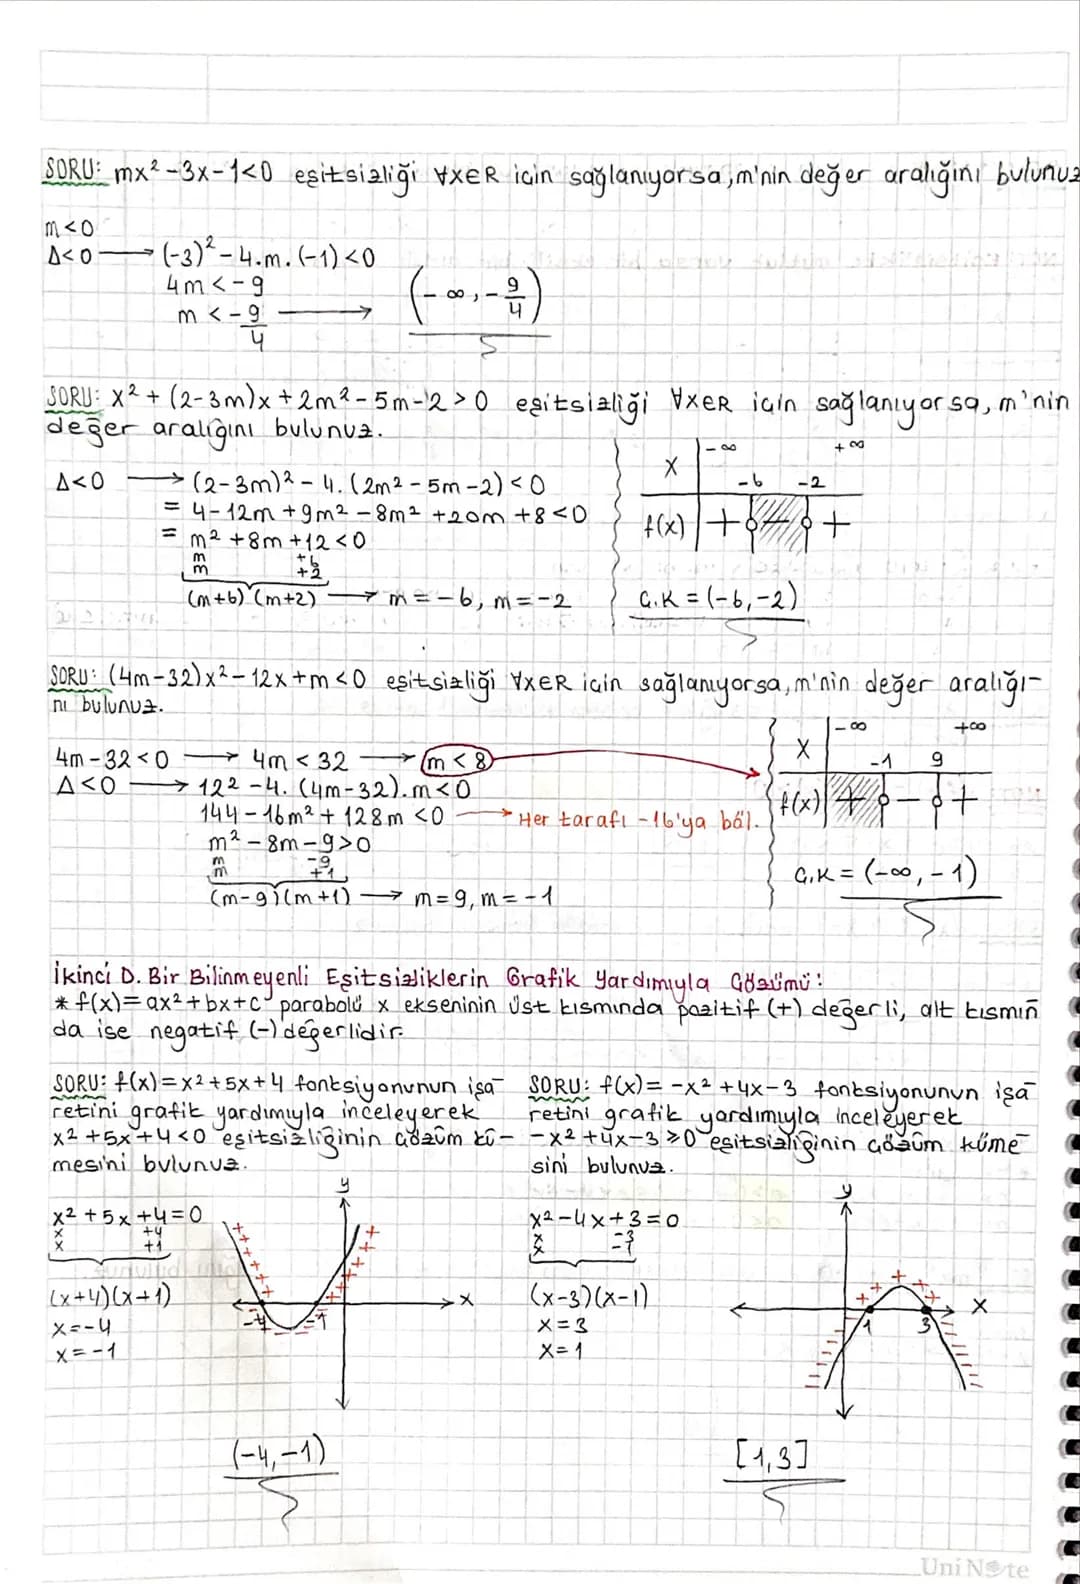 SORU: mx²-3x-1<0 eşitsizliği ∀xER için sağlanıyorsa, m'nin değer aralığını bulunuz
m<0
Δ<0 → (-3)² - 4.m.(-1) <0
4m < -9
m < -9/4 → (-∞, -9/4)
SORU: x² + (2-3m)x + 2m² - 5m - 2 > 0 eşitsizliği ∀xER için sağlanıyorsa, m'nin
değer aralığını bulunuz.
Δ<0 → (2-3m)² - 4.(2m² - 5m - 2) < 0
= 4 - 12m + 9m² - 8m² + 20m + 8 < 0
= m² + 8m + 12 < 0
m +6
m +2
(m+6) (m+2) → m = -6, m = -2
x -∞ -6 -2 +∞
f(x) + - +
Ç.K = (-6, -2)
SORU: (4m-32)x² - 12x + m < 0 eşitsizliği ∀xER için sağlanıyorsa, m'nin değer aralığı-
nı bulunuz.
4m - 32 < 0 → 4m < 32 → m < 8
Δ < 0 → 12² - 4. (4m-32).m < 0
144 - 16m² + 128m < 0 → Her tarafı -16'ya böl.
m² - 8m - 9 > 0
m -9
m +1
(m-9) (m+1) → m = 9, m = -1
x -∞ -1 9 +∞
f(x) + - +
Ç.K = (-∞, -1)
İkinci D. Bir Bilinmeyenli Eşitsizliklerin Grafik Yardımıyla Çözümü:
* f(x) = ax² + bx + c parabolü x ekseninin üst kısmında pozitif (+) değerli, alt kısmın
da ise negatif (-) değerlidir.
SORU: f(x) = x² + 5x + 4 fonksiyonunun işa-
retini grafik yardımıyla inceleyerek
x² + 5x + 4 < 0 eşitsizliğinin çözüm kü-
mesini bulunuz.
x² + 5x + 4 = 0
x +4
x +1
(x+4)(x+1)
x = -4
x = -1
y
x
-4 -1
(-4, -1)
SORU: f(x) = -x² + 4x - 3 fonksiyonunun işa-
retini grafik yardımıyla inceleyerek
-x² + 4x - 3 ≥ 0 eşitsizliğinin çözüm küme-
sini bulunuz.
x² - 4x + 3 = 0
x -3
x -1
(x-3)(x-1)
x = 3
x = 1
y
x
1 3
[1, 3]
UniNote